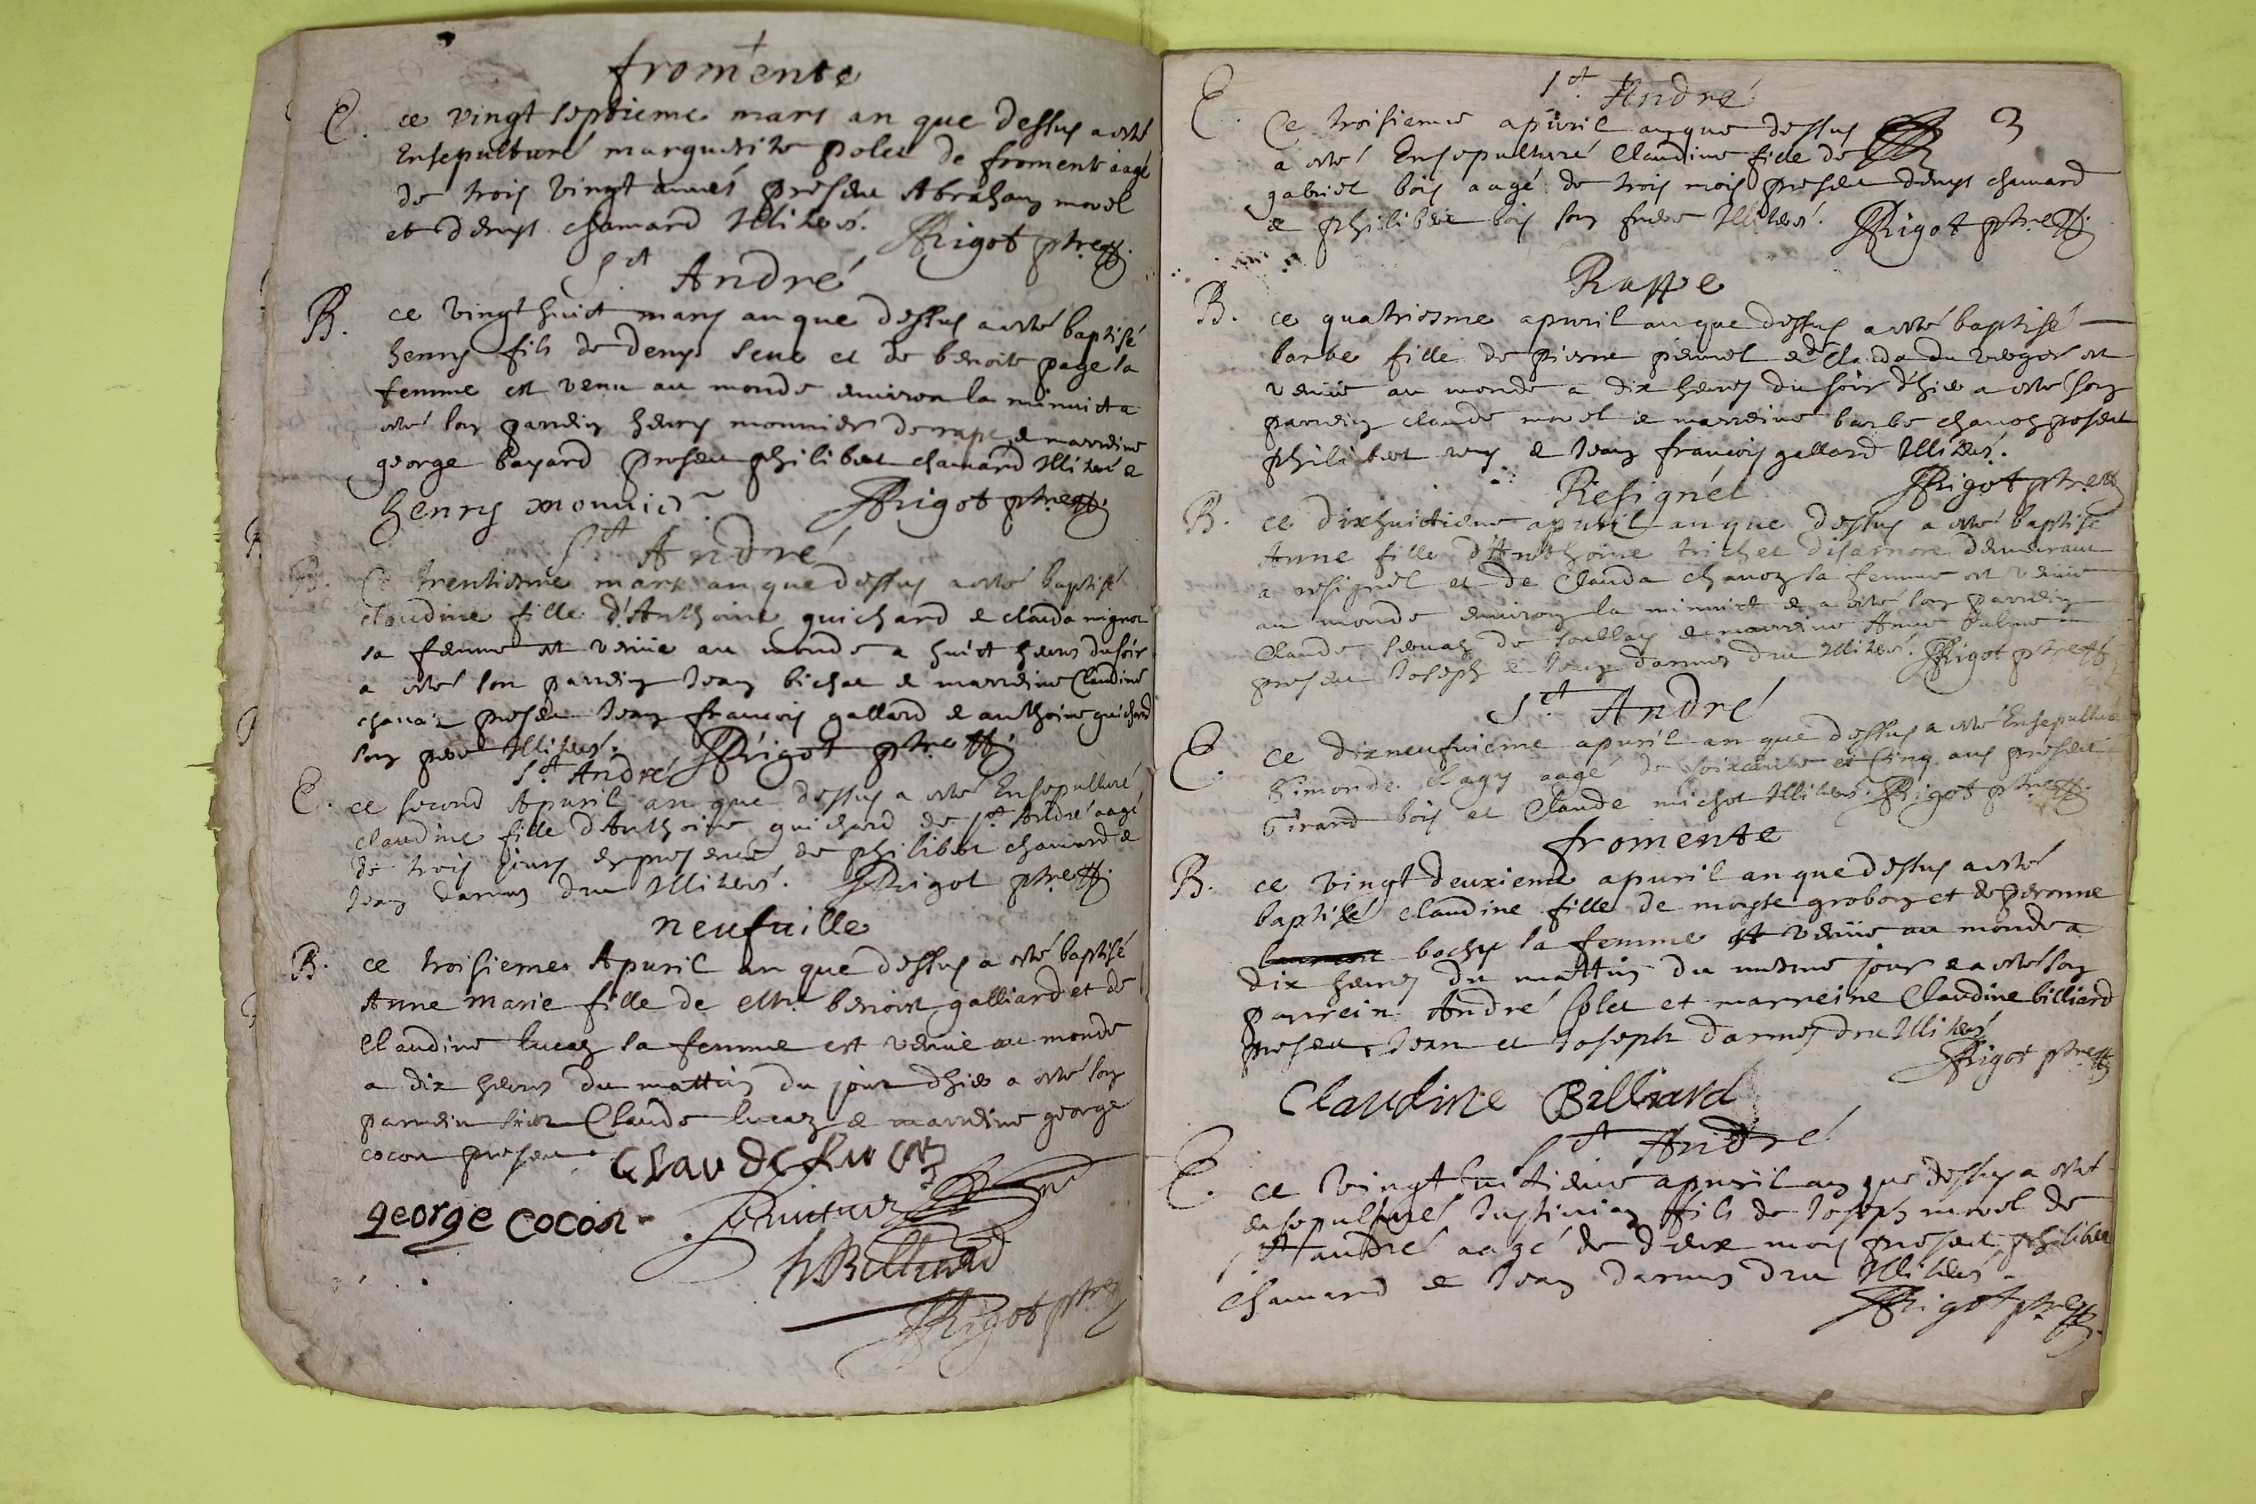 fromente
E. ce vingt septieme mars an que dessus a esté
Ensepulturé marguerite polet de fromente aagé
de trois vingt années present Abraham morel
et denys chamard Illiteres. Rigot ptre
St André
B. ce vingt huict mars an que dessus a esté baptisé
henry fils de denys seve et de benoite page sa
femme est venu au monde environ la minuict a
esté son parrein henry monnier de rape e marreine
george bayard present philibert chamard Illiteré e
henry monnier Rigot ptre
St André
B. Ce trentiesme mars an que dessus a esté baptisé
claudine fille d'Anthoine guichard e clauda mignot
sa femme est venüe au monde a huict heures du soir
a esté son parrein Jean bichat e marreine Claudine
chanaz present Jean francois gallard e anthoine guichard
son pere Illiteres. Rigot ptre
St André
E. ce second Apuril an que dessus a esté Ensepulturé
claudine fille d'Anthoine guichard de St André aagé
de trois jours en presence de philibert chamard e
Jean darmes dru Illiteres. Rigot ptre
neufuille
B. ce troisieme Apuril an que dessus a esté baptisé
Anne marie fille de benoist galliard et de
Claudine lucaz sa femme est venüe au monde
a dix heures du mattin du jour dhier a esté son
parrein sieur Claude lucaz e marreine george
cocon present
Claude lucaz
george cocon
Billiard
Rigot ptre
3
St André
E. Ce troisieme apuril an que dessus
a esté Ensepulturé Claudine fille de
gabriel bois aagé de trois mois present denys chamard
e philibert bois son frere Illiteres. Rigot ptre
Rappe
B. ce quatriesme apuril an que dessus a esté baptisé
barbe fille de pierre perret et Clauda du verger est
venüe au monde a dix heures du soir d'hier a esté son
parrein claude morel e marreine barbe chanoz present
philibert rey e Jean francois gallard Illiteres.
Rigot ptre
Resignel
B. ce dixhuictieme apuril an que dessus a esté baptisé
Anne fille d'Anthoine trichet demeurant
a resignel et de Clauda chanoz sa femme est venüe
au monde environ la minuict e a esté son parrein
Claude de e marreine Anne
present Joseph e Jean darmes dru Illiteres. Rigot ptre
St André
E. ce dixneufuieme apuril an que dessus a esté Ensepulturé
Simonde Clagy aagé de soixante et cinq ans present
Girard bois et Claude michot Illiteres. Rigot ptre
fromente
B. ce vingt deuxieme apuril an que dessus a esté
baptisé claudine fille de moyse grobon et de peronne
bochy sa femme est venüe au monde a
dix heures du mattin du mesme jour e a esté son
parrein André Colet et marreine Claudine billiard
present Jean et Joseph darmes dru Illiteres
Rigot ptre
Claudine Billiard
St André
E. ce vingt huitieme apuril an que dessus a esté
ensepulturé Justinien fils de Joseph morel de
St andré aagé de deux mois present philibert
Chamard e Jean darmes dru Illiteres
Rigot ptre